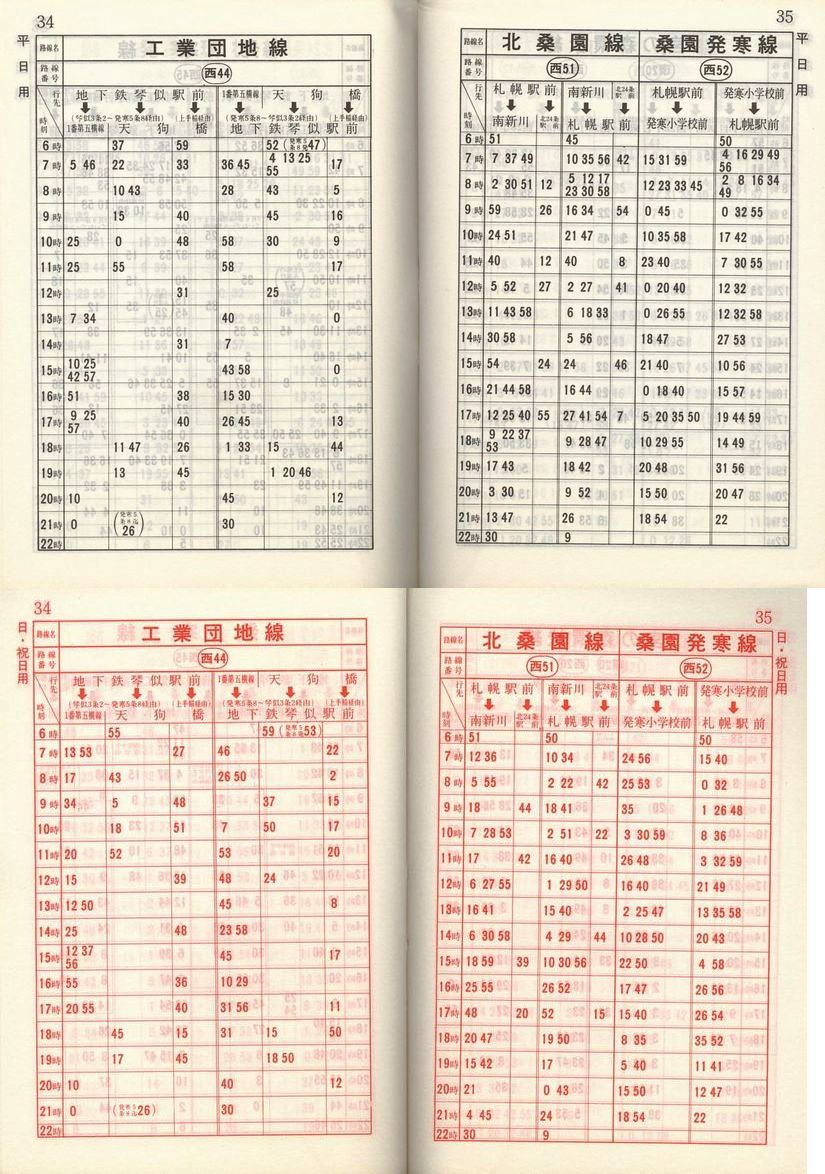 34
平日用
路線名 工業団地線
路線番号 西44
行先 地下鉄琴似駅前 1番第五横線 天狗橋
(琴似3条2〜発寒5条8経由) (上手稲経由) (発寒5条8〜琴似3条2経由) (上手稲経由)
時刻 1番第五横線 天狗橋 地下鉄琴似駅前
6時 37 59 52 (発寒5条8発47)
7時 5 46 22 33 36 45 4 13 25 55 17
8時 10 43 28 43 5
9時 15 40 45 16
10時 25 0 48 58 30 9
11時 25 55 58 17
12時 31 25
13時 7 34 40 0
14時 31 7
15時 10 25 42 57 43 58 0
16時 51 38 15 30
17時 9 25 57 40 26 45 13
18時 11 47 26 1 33 15 44
19時 13 45 1 20 46
20時 10 45 12
21時 0 (発寒5条8迄26) 30
22時
35
平日用
路線名 北桑園線 桑園発寒線
路線番号 西51 西52
行先 札幌駅前 南新川 北24条駅前 札幌駅前 発寒小学校前
時刻 南新川 北24条駅前 札幌駅前 発寒小学校前 札幌駅前
6時 51 45 50
7時 7 37 49 10 35 56 42 15 31 59 4 16 29 49 56
8時 2 30 51 12 5 12 17 23 30 58 12 23 33 45 2 8 16 34 49
9時 59 26 16 34 54 0 45 0 32 55
10時 24 51 21 47 10 35 58 17 42
11時 40 12 40 8 23 40 7 30 55
12時 5 52 27 2 27 41 0 20 40 12 32
13時 11 43 58 6 18 33 0 26 55 12 32 58
14時 30 58 5 56 18 47 27 53
15時 54 24 24 46 21 40 10 56
16時 21 44 58 16 44 0 18 40 15 57
17時 12 25 40 55 27 41 54 7 5 20 35 50 19 44 59
18時 9 22 37 53 9 28 47 10 29 55 14 49
19時 17 43 18 42 20 48 31 56
20時 3 30 9 52 15 50 20 47
21時 13 47 26 18 54 22
22時 30 9
34
日・祝日用
路線名 工業団地線
路線番号 西44
行先 地下鉄琴似駅前 1番第五横線 天狗橋
(琴似3条2〜発寒5条8経由) (上手稲経由) (発寒5条8〜琴似3条2経由) (上手稲経由)
時刻 1番第五横線 天狗橋 地下鉄琴似駅前
6時 55 59 (発寒5条8発53)
7時 13 53 27 46 22
8時 17 43 26 50 2
9時 34 5 48 37 15
10時 18 51 7 50 17
11時 20 52 53 20
12時 15 39 48 24
13時 12 50 45 8
14時 25 48 23 58
15時 12 37 56 45 17
16時 55 36 10 29
17時 20 55 40 31 56 11
18時 45 15 31 15 50
19時 17 45 18 50
20時 10 40 12
21時 0 (発寒5条8迄26) 30
22時
35
日・祝日用
路線名 北桑園線 桑園発寒線
路線番号 西51 西52
行先 札幌駅前 南新川 北24条駅前 札幌駅前 発寒小学校前
時刻 南新川 北24条駅前 札幌駅前 発寒小学校前 札幌駅前
6時 51 50 50
7時 12 36 10 34 24 56 15 40
8時 5 55 2 22 42 25 53 0 32
9時 18 44 18 41 35 1 26 48
10時 7 28 53 2 51 22 3 30 59 8 36
11時 17 42 16 40 26 48 3 32 59
12時 6 27 55 1 29 50 16 40 21 49
13時 16 41 15 40 2 25 47 13 35 58
14時 6 30 58 4 29 44 10 28 50 20 43
15時 18 59 39 10 30 56 22 50 4 58
16時 25 55 26 52 17 47 26 56
17時 48 20 52 15 15 40 26 54
18時 20 47 19 50 8 35 35 52
19時 15 42 17 5 40 11 41
20時 21 0 43 15 50 12 47
21時 4 45 24 18 54 22
22時 30 9